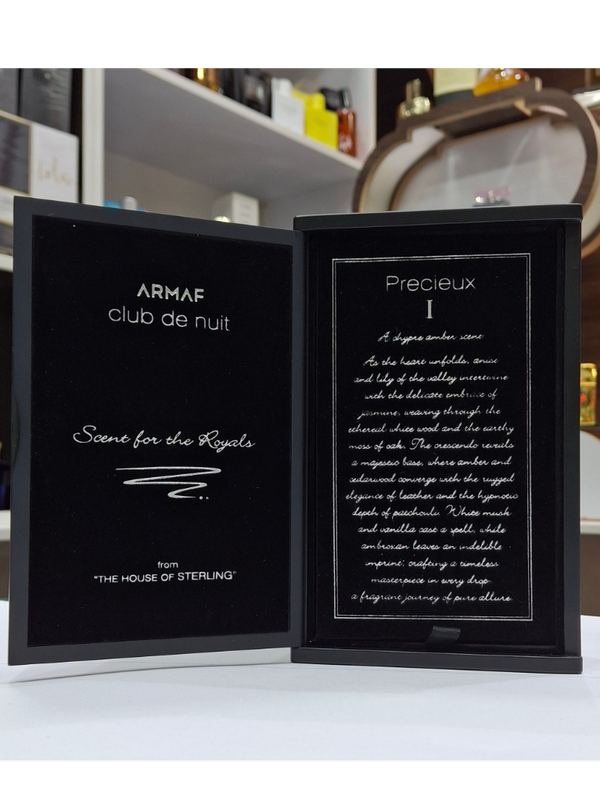 ARMAF
club de nuit
Scent for the Royals
from
"THE HOUSE OF STERLING"
Precieux
I
A chypre amber scene
As the heart unfolds, anise
and lily of the valley intertwine
with the delicate embrace of
jasmine, weaving through the
ethereal white wood and the earthy
moss of oak. The crescendo reveals
a majestic base, where amber and
cedarwood converge with the rugged
elegance of leather and the hypnotic
depth of patchouli. White musk
and vanilla cast a spell, while
ambroxan leaves an indelible
imprint; crafting a timeless
masterpiece in every drop
a fragrant journey of pure allure.